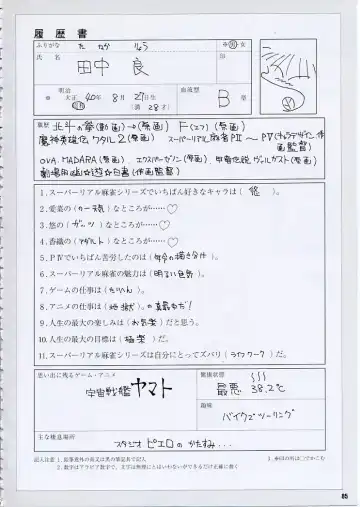 履歴書
ふりがな たなか りょう
氏名 田中 良
印
明治
大正 40年 8月 27日生
昭和 (満 28才)
血液型 B型
職歴 北斗の拳(動画)→(原画) F(エフ)(原画)
魔神英雄伝ワタル2(原画) スーパーリアル麻雀PII〜PV(キャラデザイン,作画監督)
OVA. MADARA(原画). エクスパーゼノン(原画). 甲竜伝説ヴィルガスト(原画)
劇場用幽☆遊☆白書(作画監督)
1. スーパーリアル麻雀シリーズでいちばん好きなキャラは(悠)。
2. 愛菜の(カー天気)なところが……♡
3. 悠の(ガッツ)なところが……♡
4. 香織の(アダルト)なところが……♡
5. PⅣでいちばん苦労したのは(毎分の描き分け)。
6. スーパーリアル麻雀の魅力は(明るい色気)。
7. ゲームの仕事は(たいへん)。
8. アニメの仕事は(地獄)。の真最中だ!
9. 人生の最大の楽しみは(お気楽)だと思う。
10. 人生の最大の目標は(極楽)だ。
11. スーパーリアル麻雀シリーズは自分にとってズバリ(ライフワーク)だ。
思い出に残るゲーム・アニメ
宇宙戦艦ヤマト
健康状態
最悪 38.2℃
趣味
バイクでツーリング
主な棲息場所
スタジオピエロのかたすみ...
記入注意 1. 鉛筆以外の青又は黒の筆記具で記入
2. 数字はアラビア数字で、文字は無理にとはいわないができるだけ正確に書く
3. ※印の所は○でかこむ
85